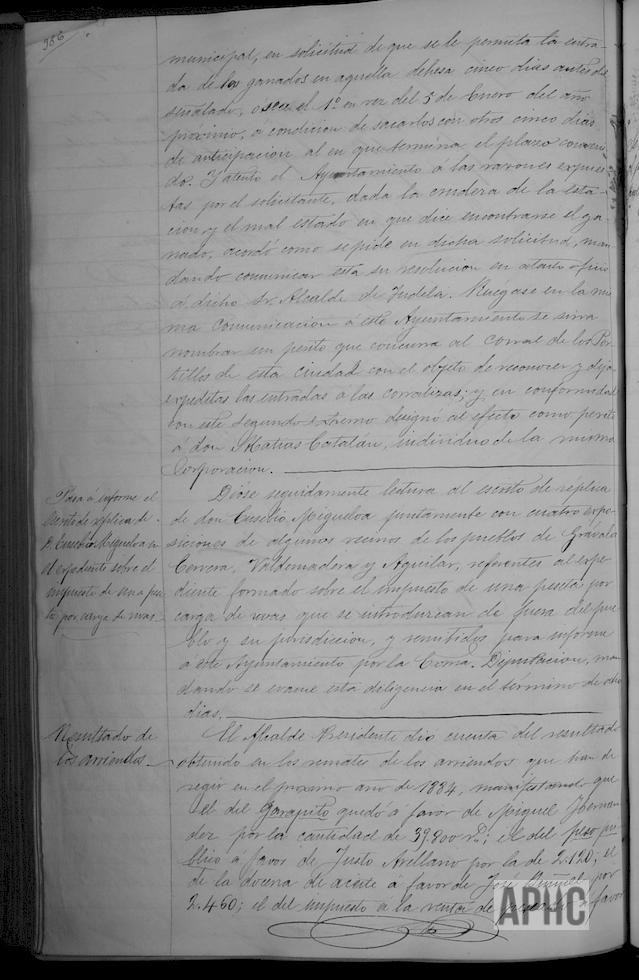 986
municipal, en solicitud de que se le permita la entra-
da de los ganados en aquella dehesa cinco dias antes del
señalado, o sea el 1º en vez del 5 de Enero del año
proximo, á condicion de sacarlos con otros cinco dias
de anticipacion al en que termina el plazo conveni-
do. Y atento el Ayuntamiento á las razones expues-
tas por el solicitante, dada la crudeza de la esta-
cion y el mal estado en que dice encontrarse el ga-
nado, acordó como se pide en dicha solicitud, man-
dando comunicar esta su resolucion en atento oficio
á dicho Sr. Alcalde de Tudela. Ruégase en la mis-
ma comunicacion á este Ayuntamiento se sirva
nombrar un perito que concurra al corral de los Por-
tillos de esta ciudad con el objeto de reconocer y dejar
expeditas las entradas á las corralizas; y en conformidad
con este segundo extremo designó al efecto como perito
á don Matias Catalán, individuo de la misma
Corporacion.
Pasa á informe el
escrito de réplica de
D. Eusebio Migueloa en
el expediente sobre el
impuesto de una pese-
ta por carga de uvas
Dióse seguidamente lectura al escrito de réplica
de don Eusebio Migueloa juntamente con cuatro expo-
siciones de algunos vecinos de los pueblos de Grávalos
Cervera, Valdemadera y Aguilar, referentes al expe-
diente formado sobre el impuesto de una peseta por
carga de uvas que se introduzcan de fuera del pue-
blo y su jurisdiccion, y remitidos para informe
a este Ayuntamiento por la Excma. Diputacion, man-
dando se evacue esta diligencia en el término de ocho
dias.
Resultado de
los arriendos
El Alcalde Presidente dio cuenta del resultado
obtenido en los remates de los arriendos que han de
regir en el próximo año de 1884, manifestando que
el del Garapito quedó á favor de Miguel Hernan-
dez por la cantidad de 39.800 rs.; el del peso pú-
blico a favor de Justo Arellano por la de 2.120; el
de la docena de aceite á favor de José por
2.460; el del impuesto a la venta de á favor
APHC